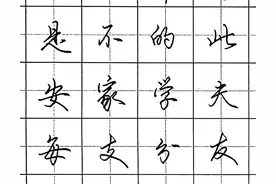 是不的此
安家学夫
每支分友